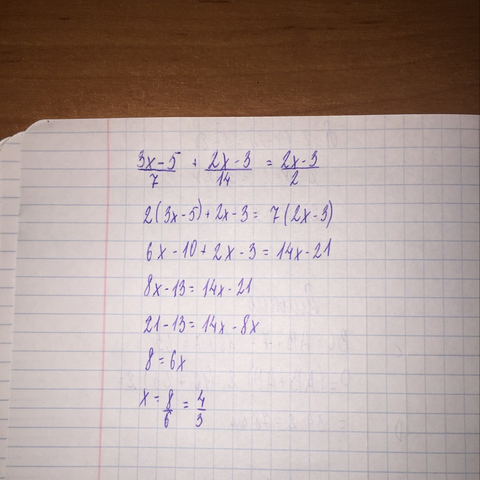 (3x-5)/7 + (2x-3)/14 = (2x-3)/2
2(3x-5)+2x-3 = 7(2x-3)
6x-10+2x-3 = 14x-21
8x-13 = 14x-21
21-13 = 14x-8x
8 = 6x
x = 8/6 = 4/3